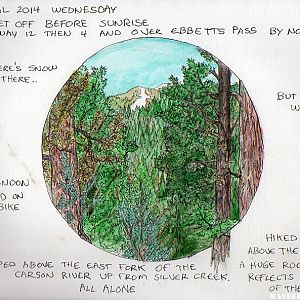 IL 2014 WEDNESDAY
ET OFF BEFORE SUNRISE
WAY 12 THEN 4 AND OVER EBBETTS PASS BY NO
ERE'S SNOW
THERE..
BUT
W
NOON
D ON
BIKE
HIKED
ABOVE THE
A HUGE ROC
REFLECTS
OF THE
PED ABOVE THE EAST FORK OF THE
CARSON RIVER UP FROM SILVER CREEK.
ALL ALONE